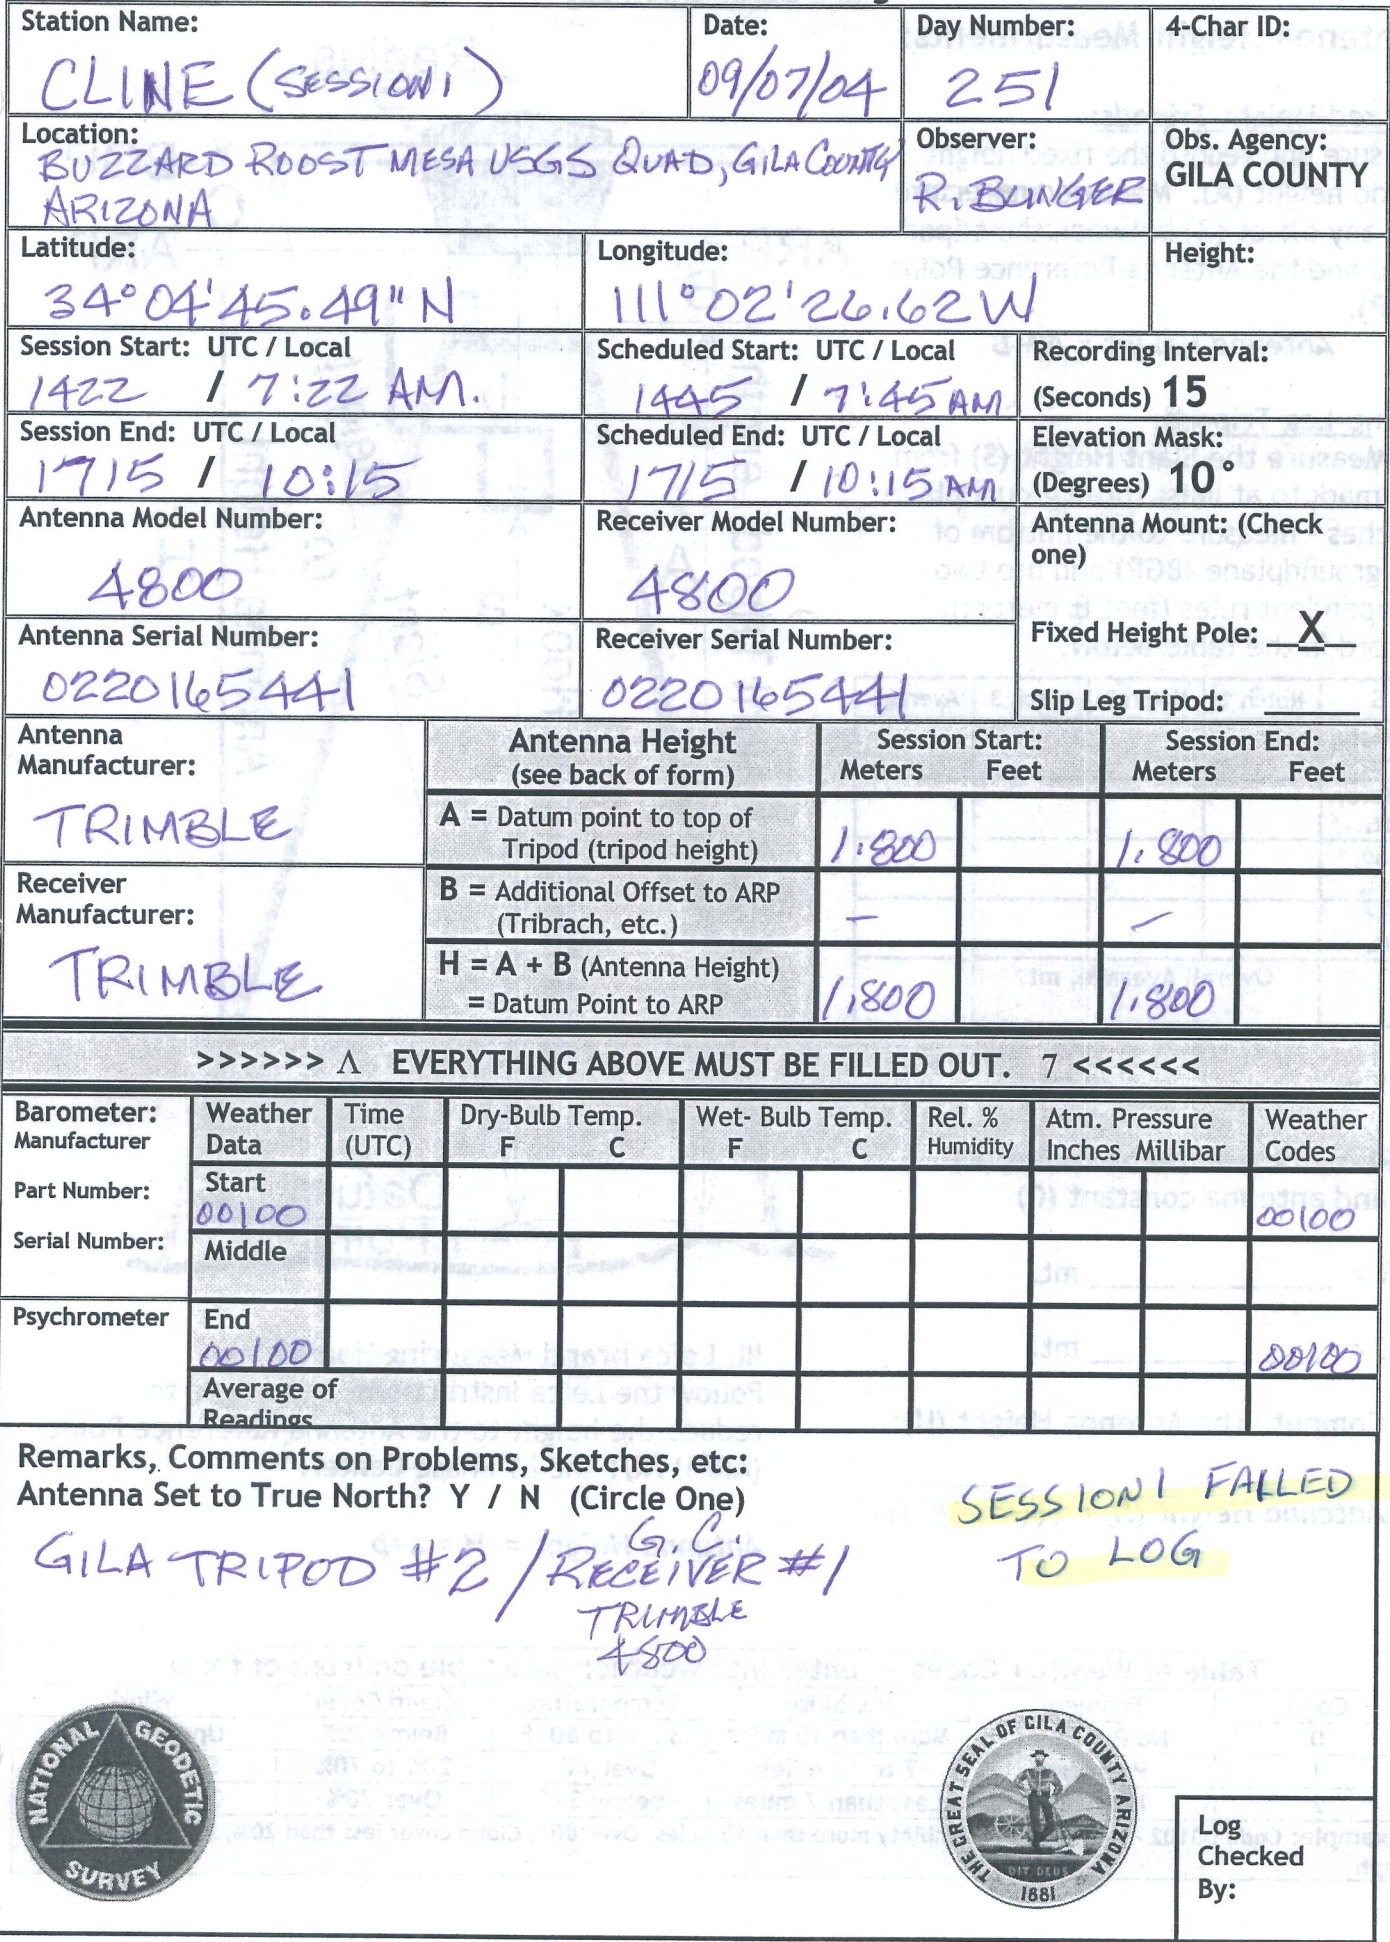 Station Name:
CLINE (SESSION 1)
Date:
09/07/04
Day Number:
251
4-Char ID:
Location:
BUZZARD ROOST MESA USGS QUAD, GILA COUNTY
ARIZONA
Observer:
R. BUNGER
Obs. Agency:
GILA COUNTY
Latitude:
34°04'45.49"N
Longitude:
111°02'26.62W
Height:
Session Start: UTC / Local
1422 / 7:22 AM.
Scheduled Start: UTC / Local
1445 / 7:45 AM
Recording Interval:
(Seconds) 15
Session End: UTC / Local
1715 / 10:15
Scheduled End: UTC / Local
1715 / 10:15 AM
Elevation Mask:
(Degrees) 10°
Antenna Model Number:
4800
Receiver Model Number:
4800
Antenna Mount: (Check
one)
Fixed Height Pole: X
Slip Leg Tripod:
Antenna Serial Number:
0220165441
Receiver Serial Number:
0220165441
Antenna
Manufacturer:
TRIMBLE
Receiver
Manufacturer:
TRIMBLE
Antenna Height
(see back of form)
Session Start:
Meters Feet
Session End:
Meters Feet
A = Datum point to top of
Tripod (tripod height)
1.800 1.800
B = Additional Offset to ARP
(Tribrach, etc.)
– –
H = A + B (Antenna Height)
= Datum Point to ARP
1.800 1.800
>>>>>> Λ EVERYTHING ABOVE MUST BE FILLED OUT. 7 <<<<<<
Barometer:
Manufacturer
Part Number:
Serial Number:
Psychrometer
Weather
Data
Time
(UTC)
Dry-Bulb Temp.
F C
Wet- Bulb Temp.
F C
Rel. %
Humidity
Atm. Pressure
Inches Millibar
Weather
Codes
Start
00100 00100
Middle
End
00100 00100
Average of
Readings
Remarks, Comments on Problems, Sketches, etc:
Antenna Set to True North? Y / N (Circle One)
SESSION 1 FAILED
TO LOG
G.C.
GILA TRIPOD #2 / RECEIVER #1
TRIMBLE
4800
NATIONAL GEODETIC
SURVEY
THE GREAT SEAL OF GILA COUNTY ARIZONA
DIT DEUS
1881
Log
Checked
By: